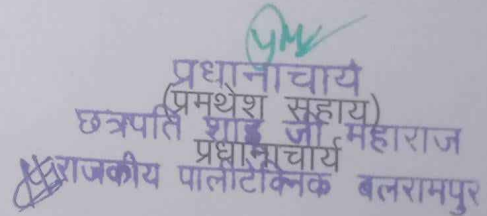 प्रधानाचार्य
(प्रमथेश सहाय)
छत्रपति शाहू जी महाराज
प्रधानाचार्य
राजकीय पालीटेक्निक बलरामपुर